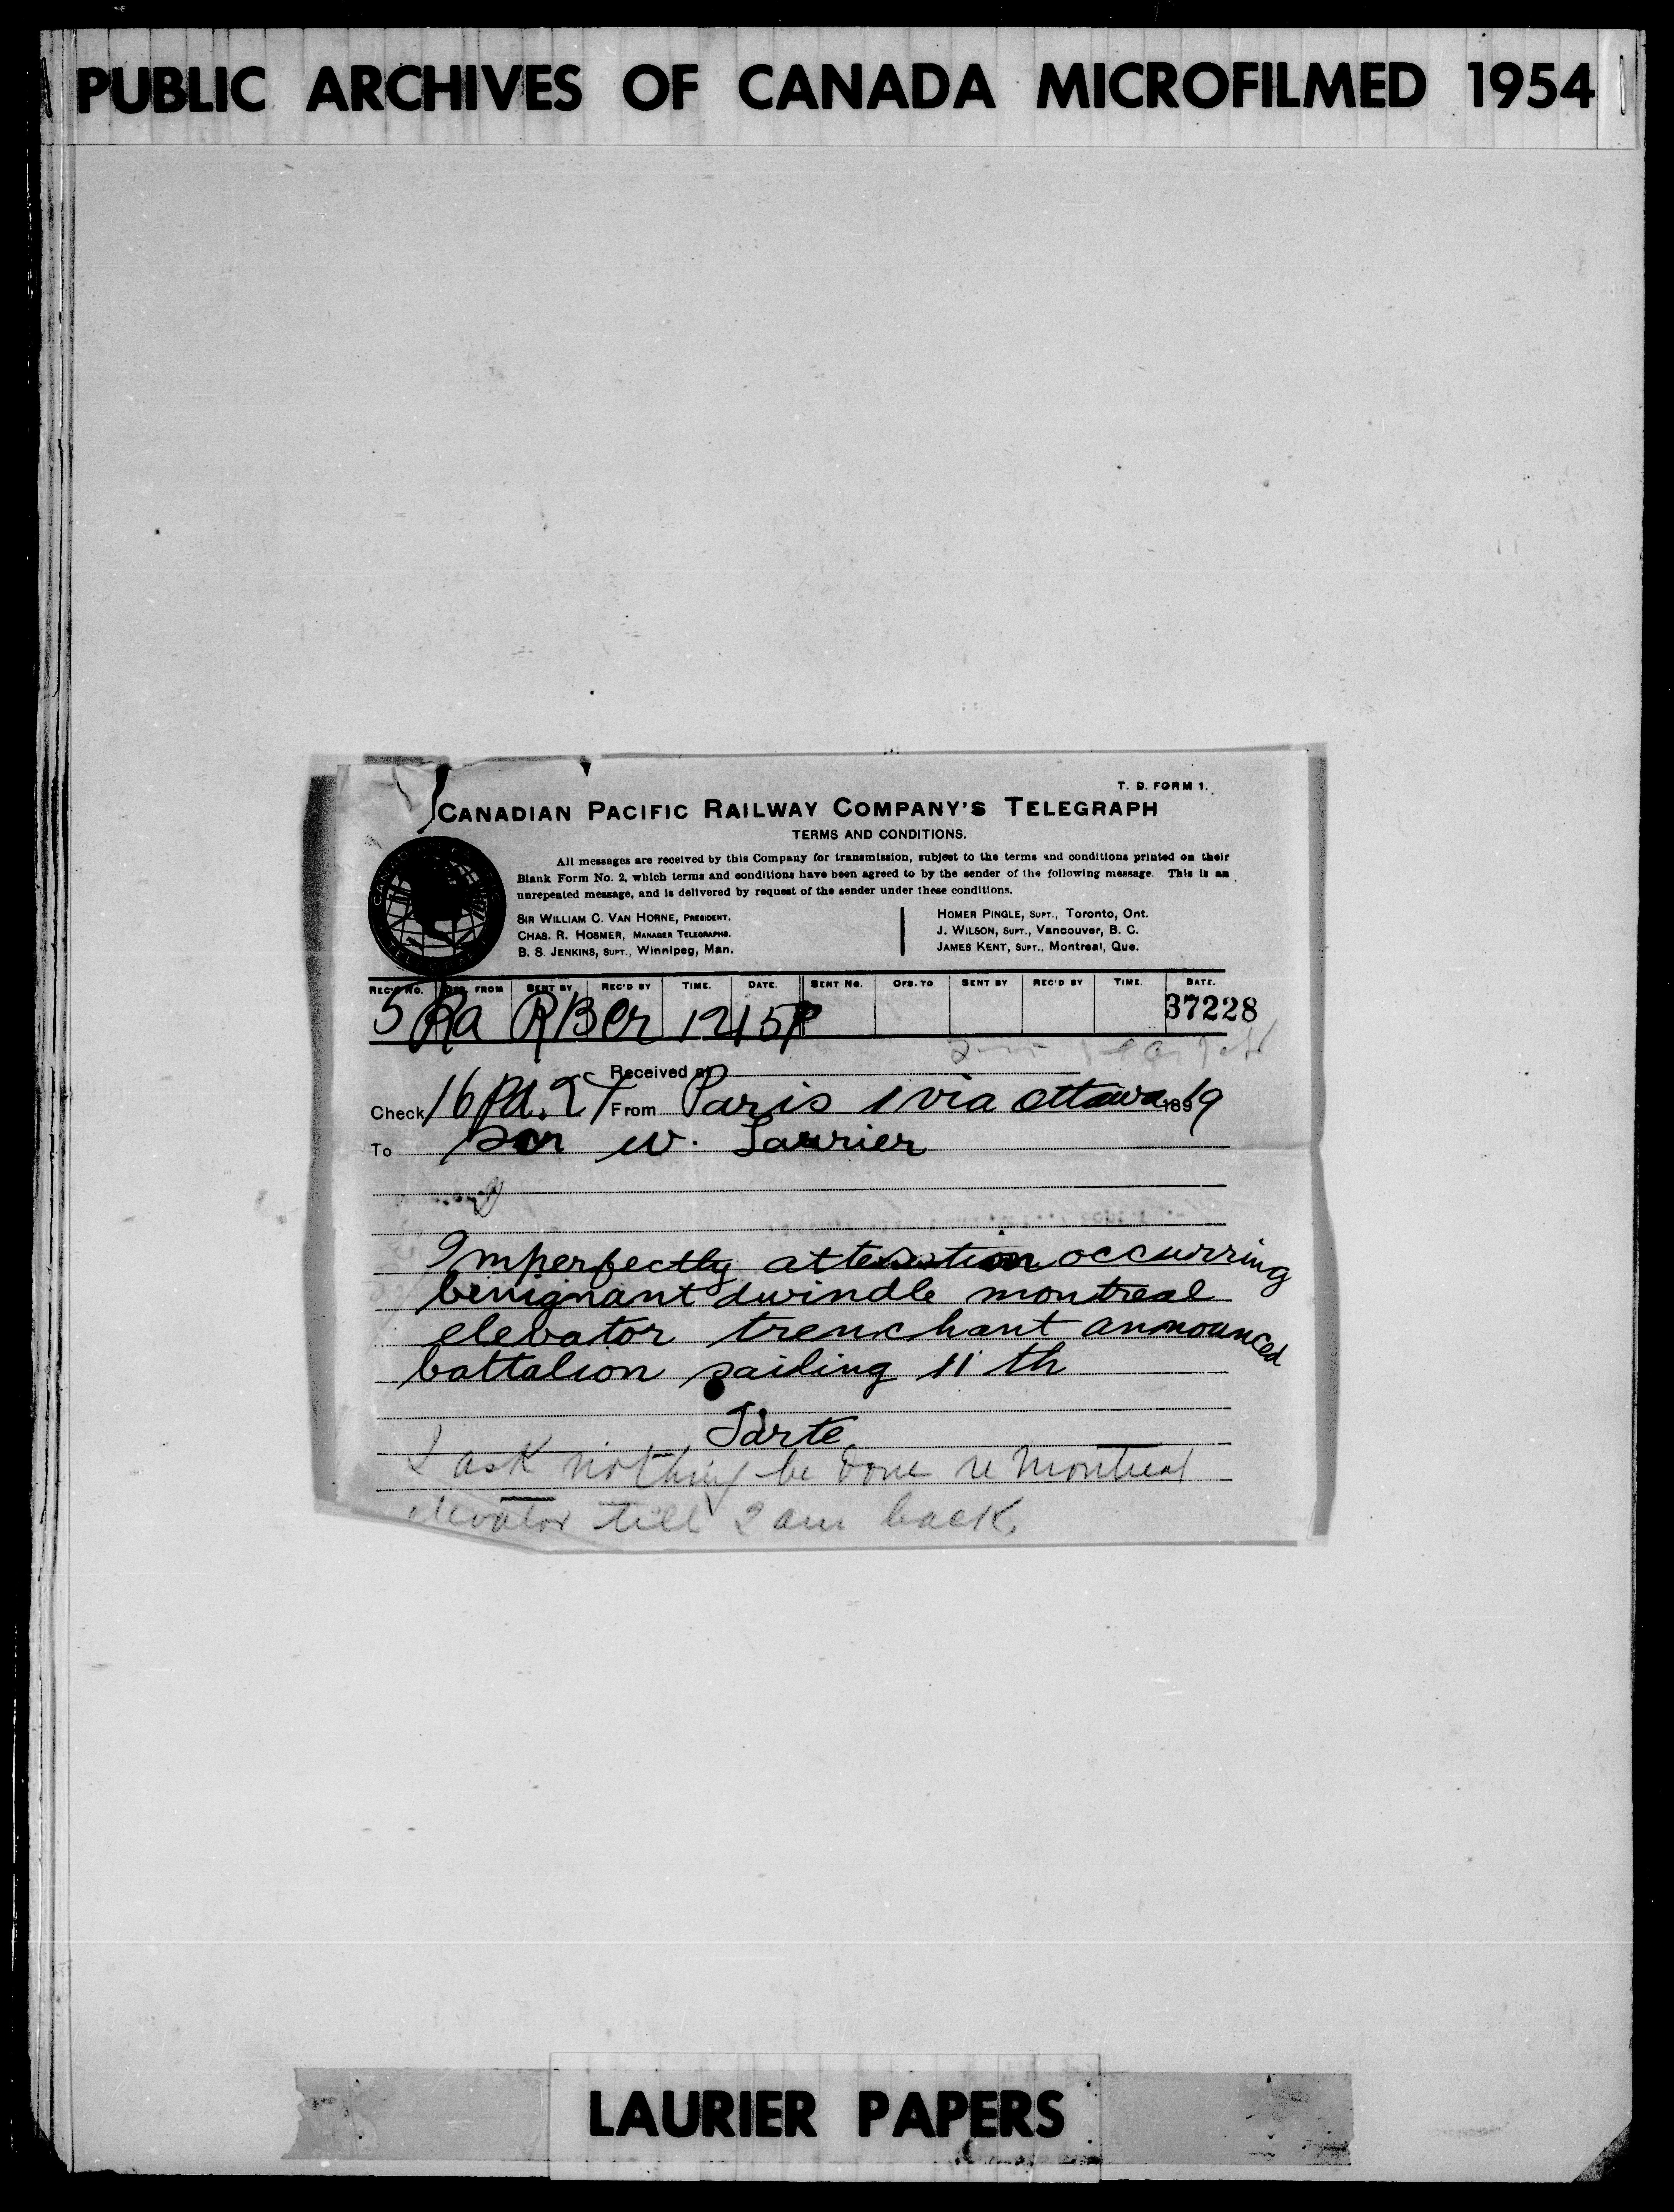 PUBLIC ARCHIVES OF CANADA MICROFILMED 1954
T. D. FORM 1.
CANADIAN PACIFIC RAILWAY COMPANY'S TELEGRAPH
TERMS AND CONDITIONS.
All messages are received by this Company for transmission, subject to the terms and conditions printed on their
Blank Form No. 2, which terms and conditions have been agreed to by the sender of the following message. This is an
unrepeated message, and is delivered by request of the sender under these conditions.
SIR WILLIAM C. VAN HORNE, PRESIDENT.
CHAS. R. HOSMER, MANAGER TELEGRAPHS.
B. S. JENKINS, SUPT., Winnipeg, Man.
HOMER PINGLE, SUPT., Toronto, Ont.
J. WILSON, SUPT., Vancouver, B. C.
JAMES KENT, SUPT., Montreal, Que.
REC'D NO. OFS. FROM SENT BY REC'D BY TIME. DATE. SENT NO. OFS. TO SENT BY REC'D BY TIME. DATE.
5 Ra RB Er 1215P 37228
Received at
Check 16 Pd. 27 From Paris 1 via Ottawa 1899
To Sir W. Laurier
Imperfectly attention occurring
benignant dwindle montreal
elevator trenchant announced
battalion sailing 11th
Tarte
I ask nothing be done re Montreal
elevator till I am back.
LAURIER PAPERS